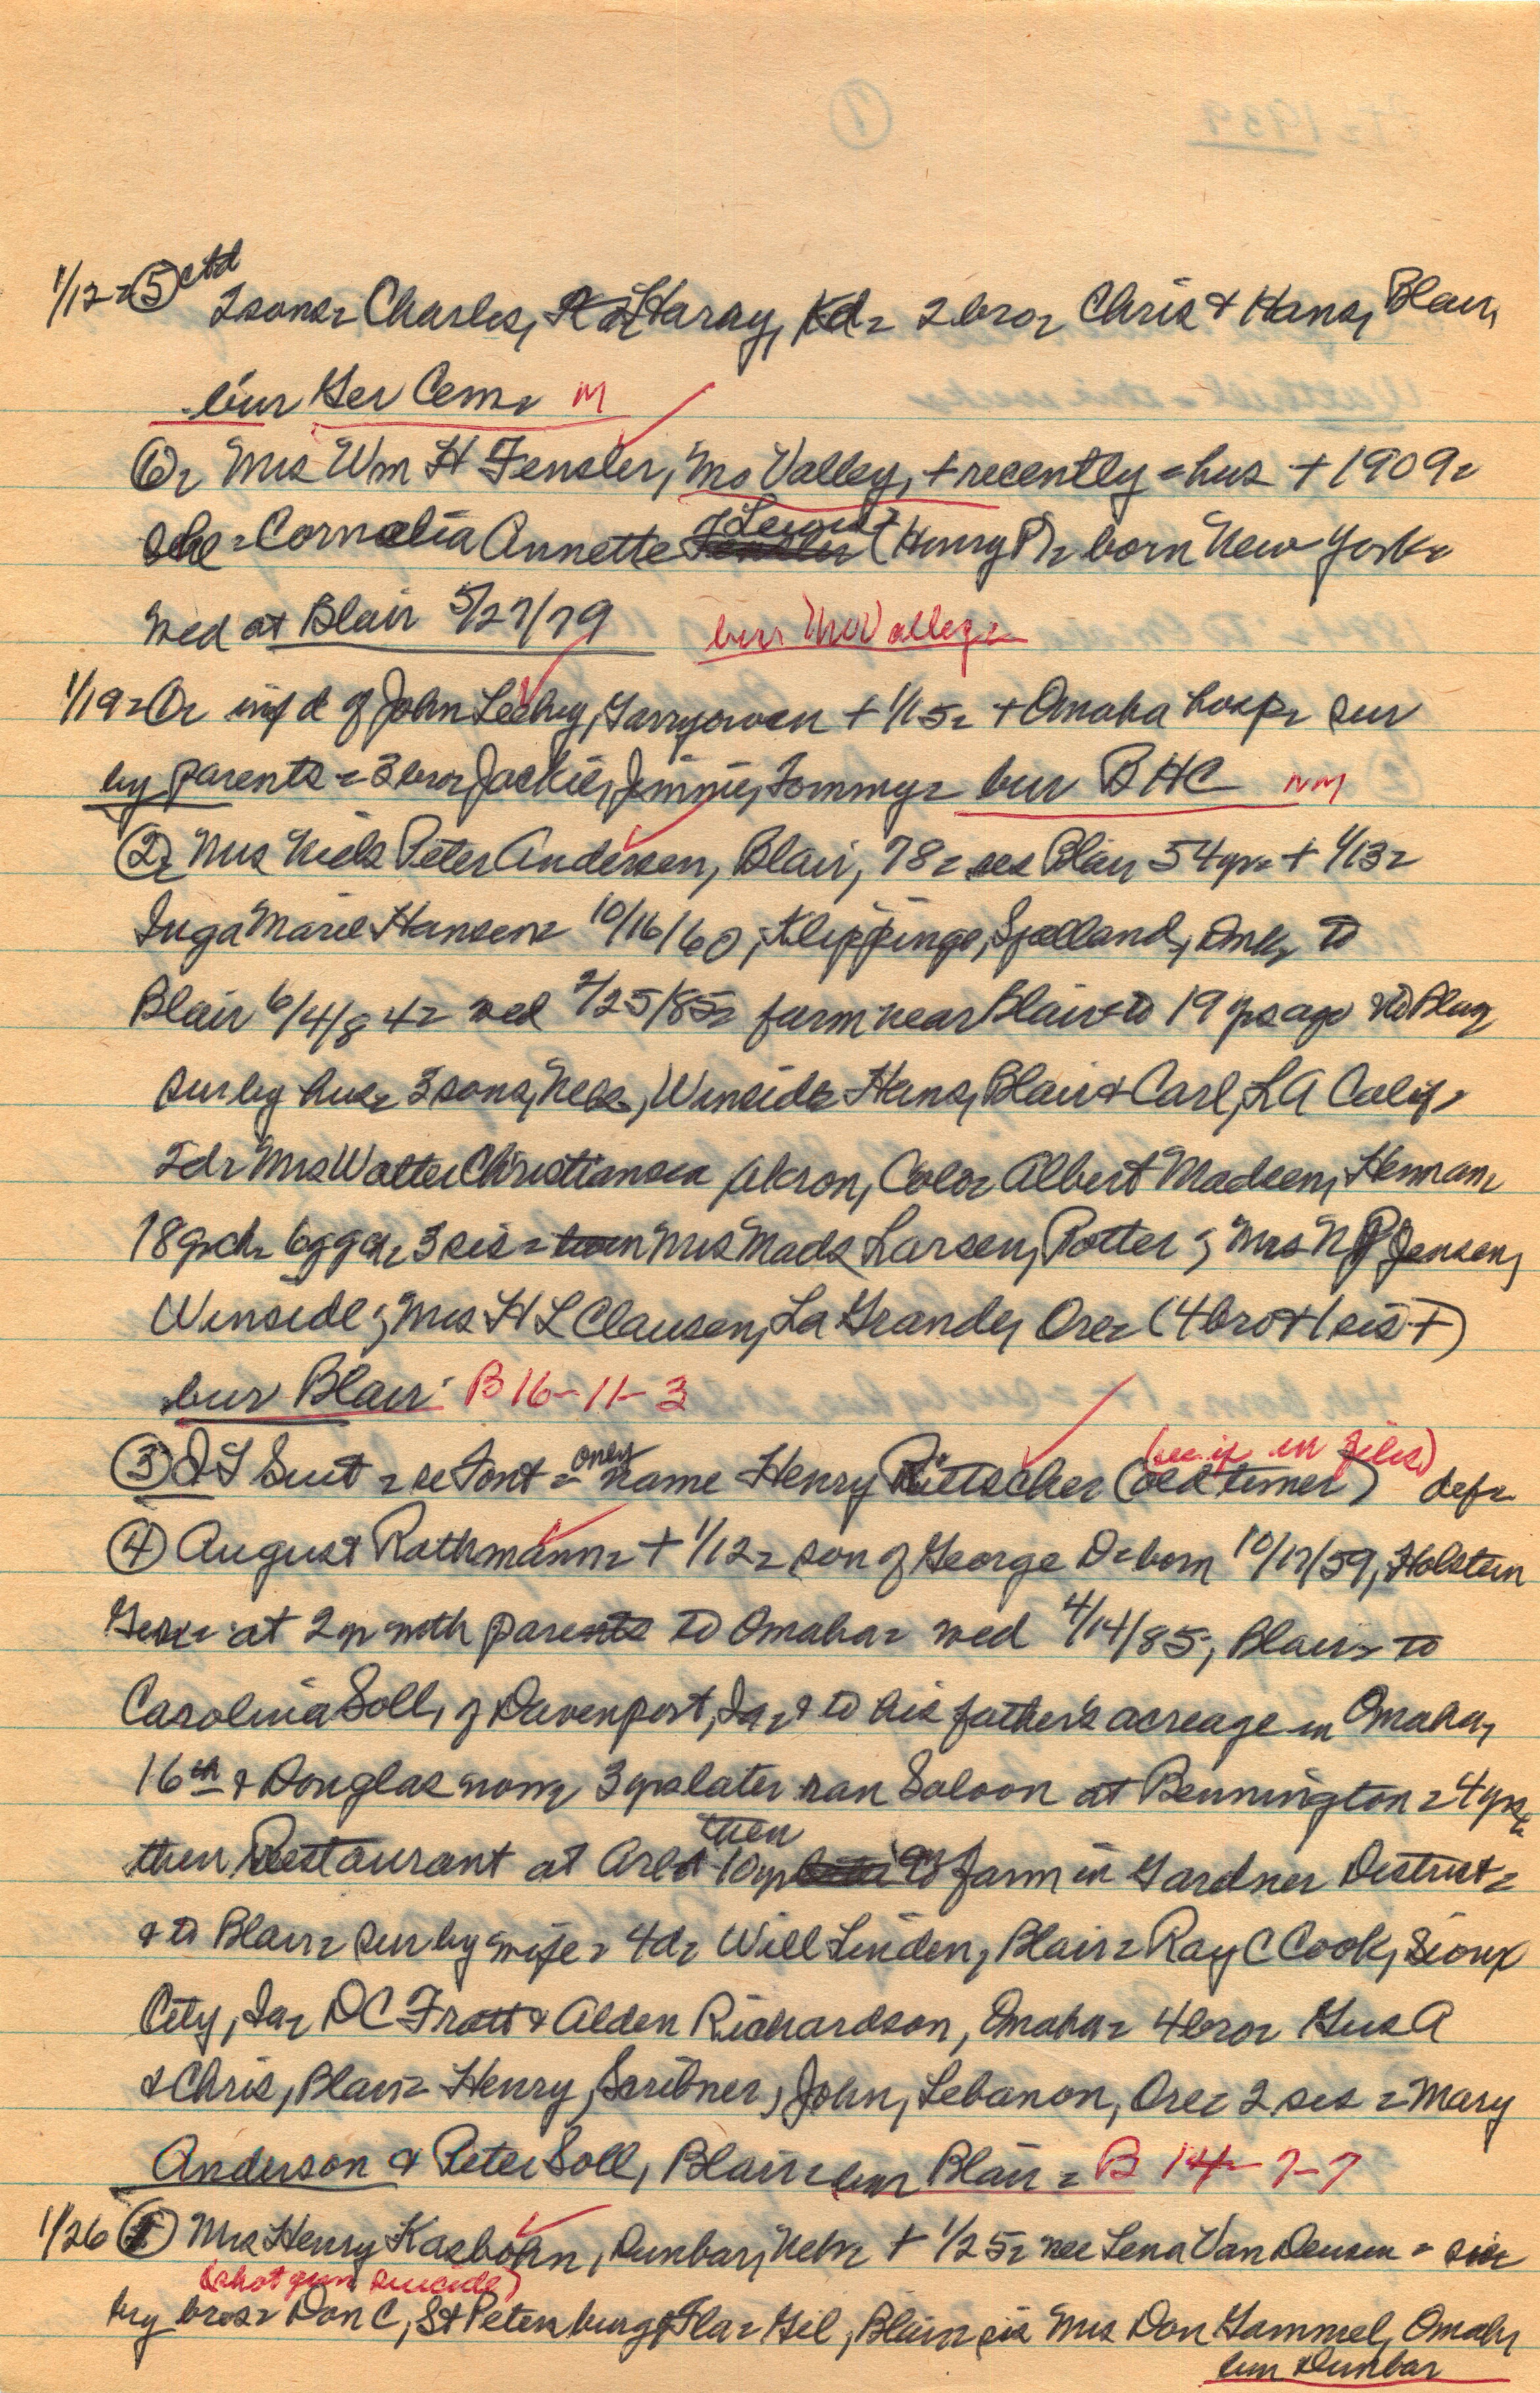 1/12 = ⑤ ctd
2 sons = Charles, Haray, Kd = 2 bro = Chris & Hans, Blair,
bur Ger Cem = M
⑥ = Mrs Wm H Fensler, Mo Valley, + recently = hus + 1909 =
she = Cornelia Annette (Henry P) = born New York =
Wed at Blair 5/27/79 bur Mo Valley =
1/19 = ① = inf d of John Leehy, Garryowen + 1/15 = + Omaha hosp = sur
by parents = 3 bro = Jackie, Jimmie, Tommy = bur BHC NM
② = Mrs Niels Peter Andersen, Blair, 78 = res Blair 54 yr = + 1/13 =
Inga Marie Hansen = 10/16/60, Klippinge, Sjælland, Dmk, to
Blair 6/4/84 = wed 2/25/85 = farm near Blair = to 19 yrs ago to Blair
sur by hus = 3 sons, Nels, Winside = Hans, Blair & Carl, LA Calif =
2 d = Mrs Walter Christiansen, Akron, Colo = Albert Madsen, Herman =
18 gch = 6 ggch = 3 sis = Mrs Mads Larsen, Potter ; Mrs N P Jensen,
Winside ; Mrs H L Clausen, La Grande, Ore = (4 bro & 1 sis +)
bur Blair = B 16-11-3
③ D I Suit = re Font = only name Henry Rietscher (old timer) def = (see if in files)
④ August Rathmann = + 1/12 = son of George D = born 10/17/59, Holstein
Ger = at 2 yr with parents to Omaha = wed 4/14/85, Blair = to
Carolina Soll, of Davenport, Ia, & to his father's acreage in Omaha,
16th & Douglas now = 3 yrs later ran Saloon at Bennington = 4 yrs =
then Restaurant at Arl = then 10 yr on farm in Gardner District =
& to Blair = sur by wife = 4 d = Will Linden, Blair = Ray C Cook, Sioux
City, Ia = D C Fratt & Alden Richardson, Omaha = 4 bro = Gus A
& Chris, Blair = Henry, Scribner, John, Lebanon, Ore = 2 sis = Mary
Anderson & Peter Soll, Blair = bur Blair = B 14-7-7
1/26 ① Mrs Henry Kasbohn, Dunbar, Nebr + 1/25 = nee Lena Van Deusen = sur
(shot gun suicide)
by bros = Don C, St Petersburg, Fla = Gil, Blair = sis Mrs Don Gammel, Omaha,
bur Dunbar